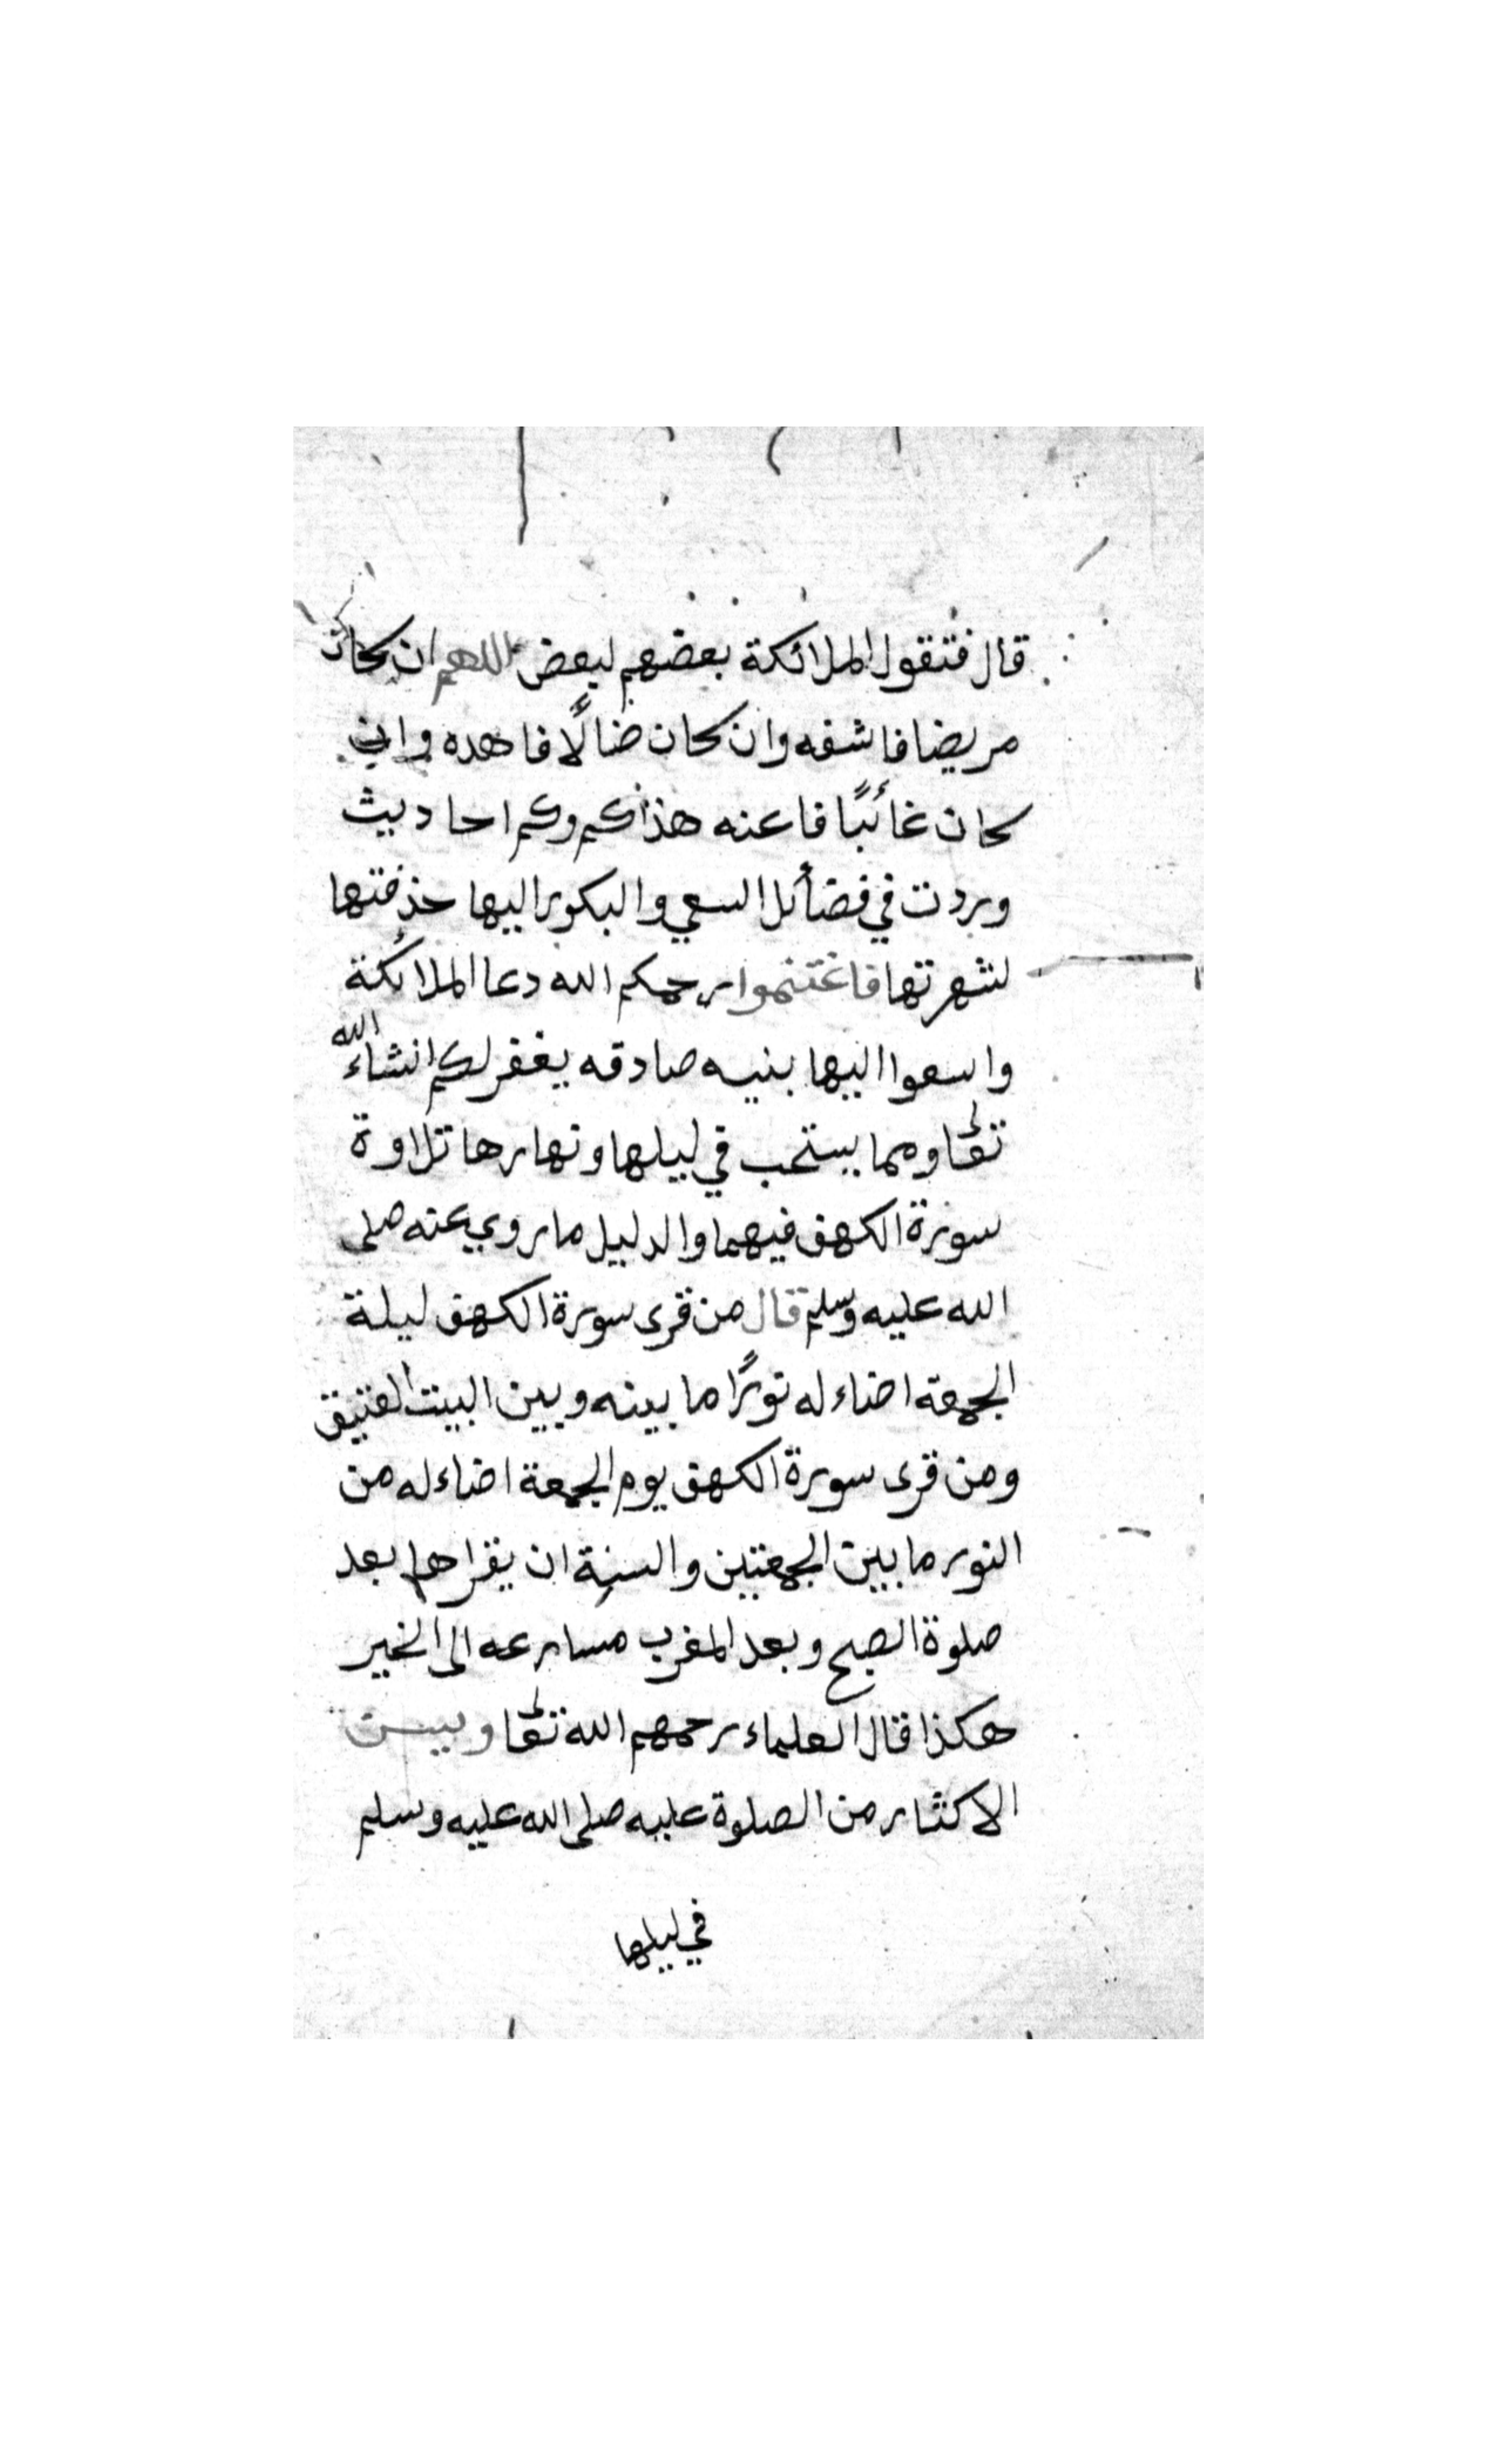 قال فتقول الملائكة بعضهم لبعض اللهم ان كان
مريضا فاشفه وان كان ضالًا فاهده وان
كان غائبًا فاعنه هذا كم وكم احاديث
وردت في فضائل السعي والبكور اليها حذفتها
لشهرتها فاغتنموا رحمكم الله دعا الملائكة
واسعوا اليها بنيه صادقه يغفر لكم انشاء الله
تعا ومما يستحب في ليلها ونهارها تلاوة
سورة الكهف فيهما والدليل ما روي عنه صلى
الله عليه وسلم قال من قرى سورة الكهف ليلة
الجمعة اضاء له نورًا ما بينه وبين البيت العتيق
ومن قرى سورة الكهف يوم الجمعة اضاء له من
النور ما بين الجمعتين والسنة ان يقراها بعد
صلوة الصبح وبعد المغرب مسارعه الى الخير
هكذا قال العلماء رحمهم الله تعا ويسن
الاكثار من الصلوة عليه صلى الله عليه وسلم
في ليلها